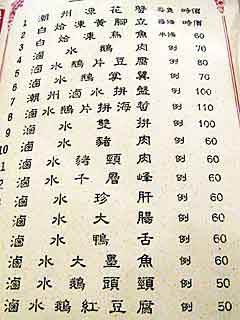 1 潮州凍花蟹 每隻 時價
2 白焓凍黃腳立 時價
3 白焓凍烏魚 半條 60
4 滷水鵝肉 例 70
5 滷水鵝片豆腐 例 80
6 滷水鵝掌翼 例 70
7 潮州滷水拼盤 例 100
8 滷水鵝片拼海蜇 例 110
9 滷水雙拼 例 100
滷水豬頸肉 例 60
滷水千層峰 例 60
滷水珍肝 例 60
滷水大腸 例 60
滷水鴨舌 例 60
滷水大墨魚 例 60
滷水鵝頭頸 例 50
滷水鵝紅豆腐 例 50